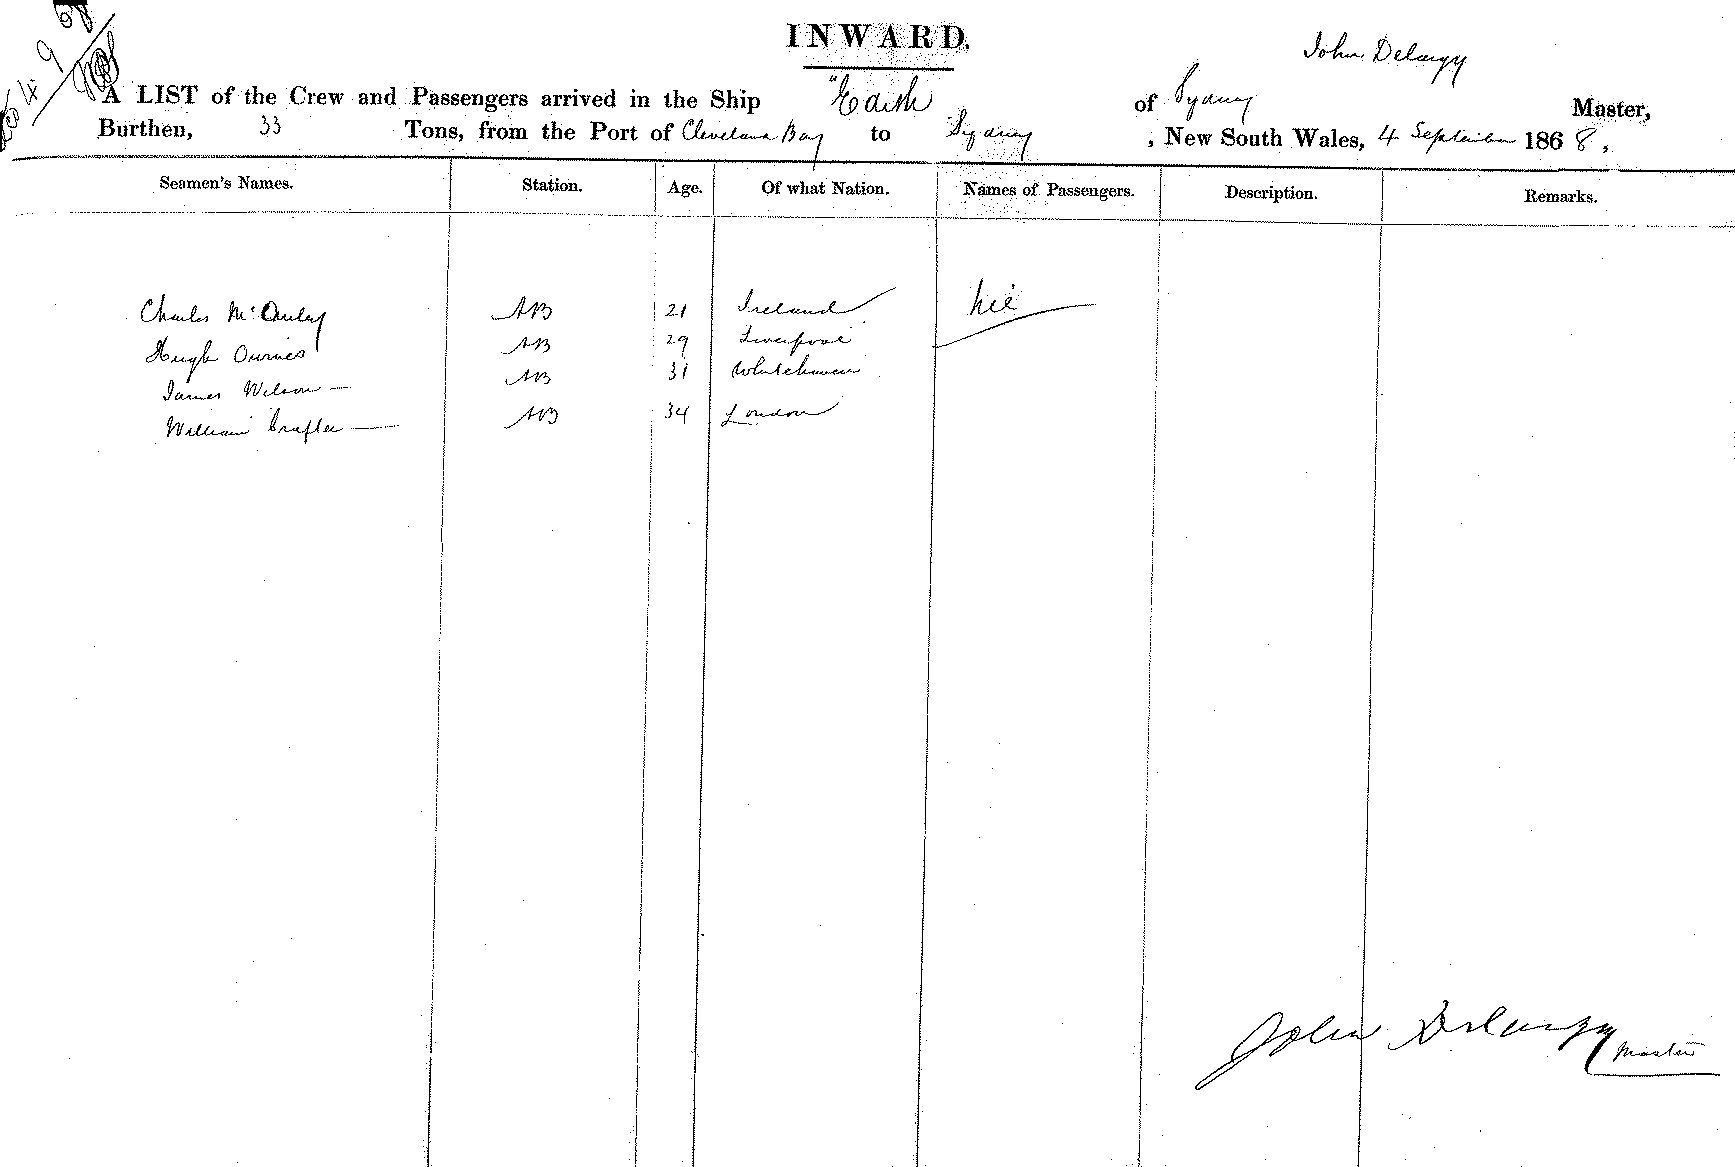 4 9 68
INWARD.
John Delargy
A LIST of the Crew and Passengers arrived in the Ship "Edith of Sydney Master,
Burthen, 33 Tons, from the Port of Cleveland Bay to Sydney, New South Wales, 4 September 1868,
Seamen's Names. Station. Age. Of what Nation. Names of Passengers. Description. Remarks.
Charles McAuley AB 21 Ireland Nil
Hugh AB 29 Liverpool
James Wilson — AB 31 Whitehaven
William — AB 34 London
John Delargy Master